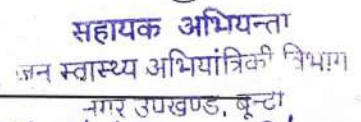 सहायक अभियन्ता
जन स्वास्थ्य अभियांत्रिकी विभाग
नगर उपखण्ड, बून्दी